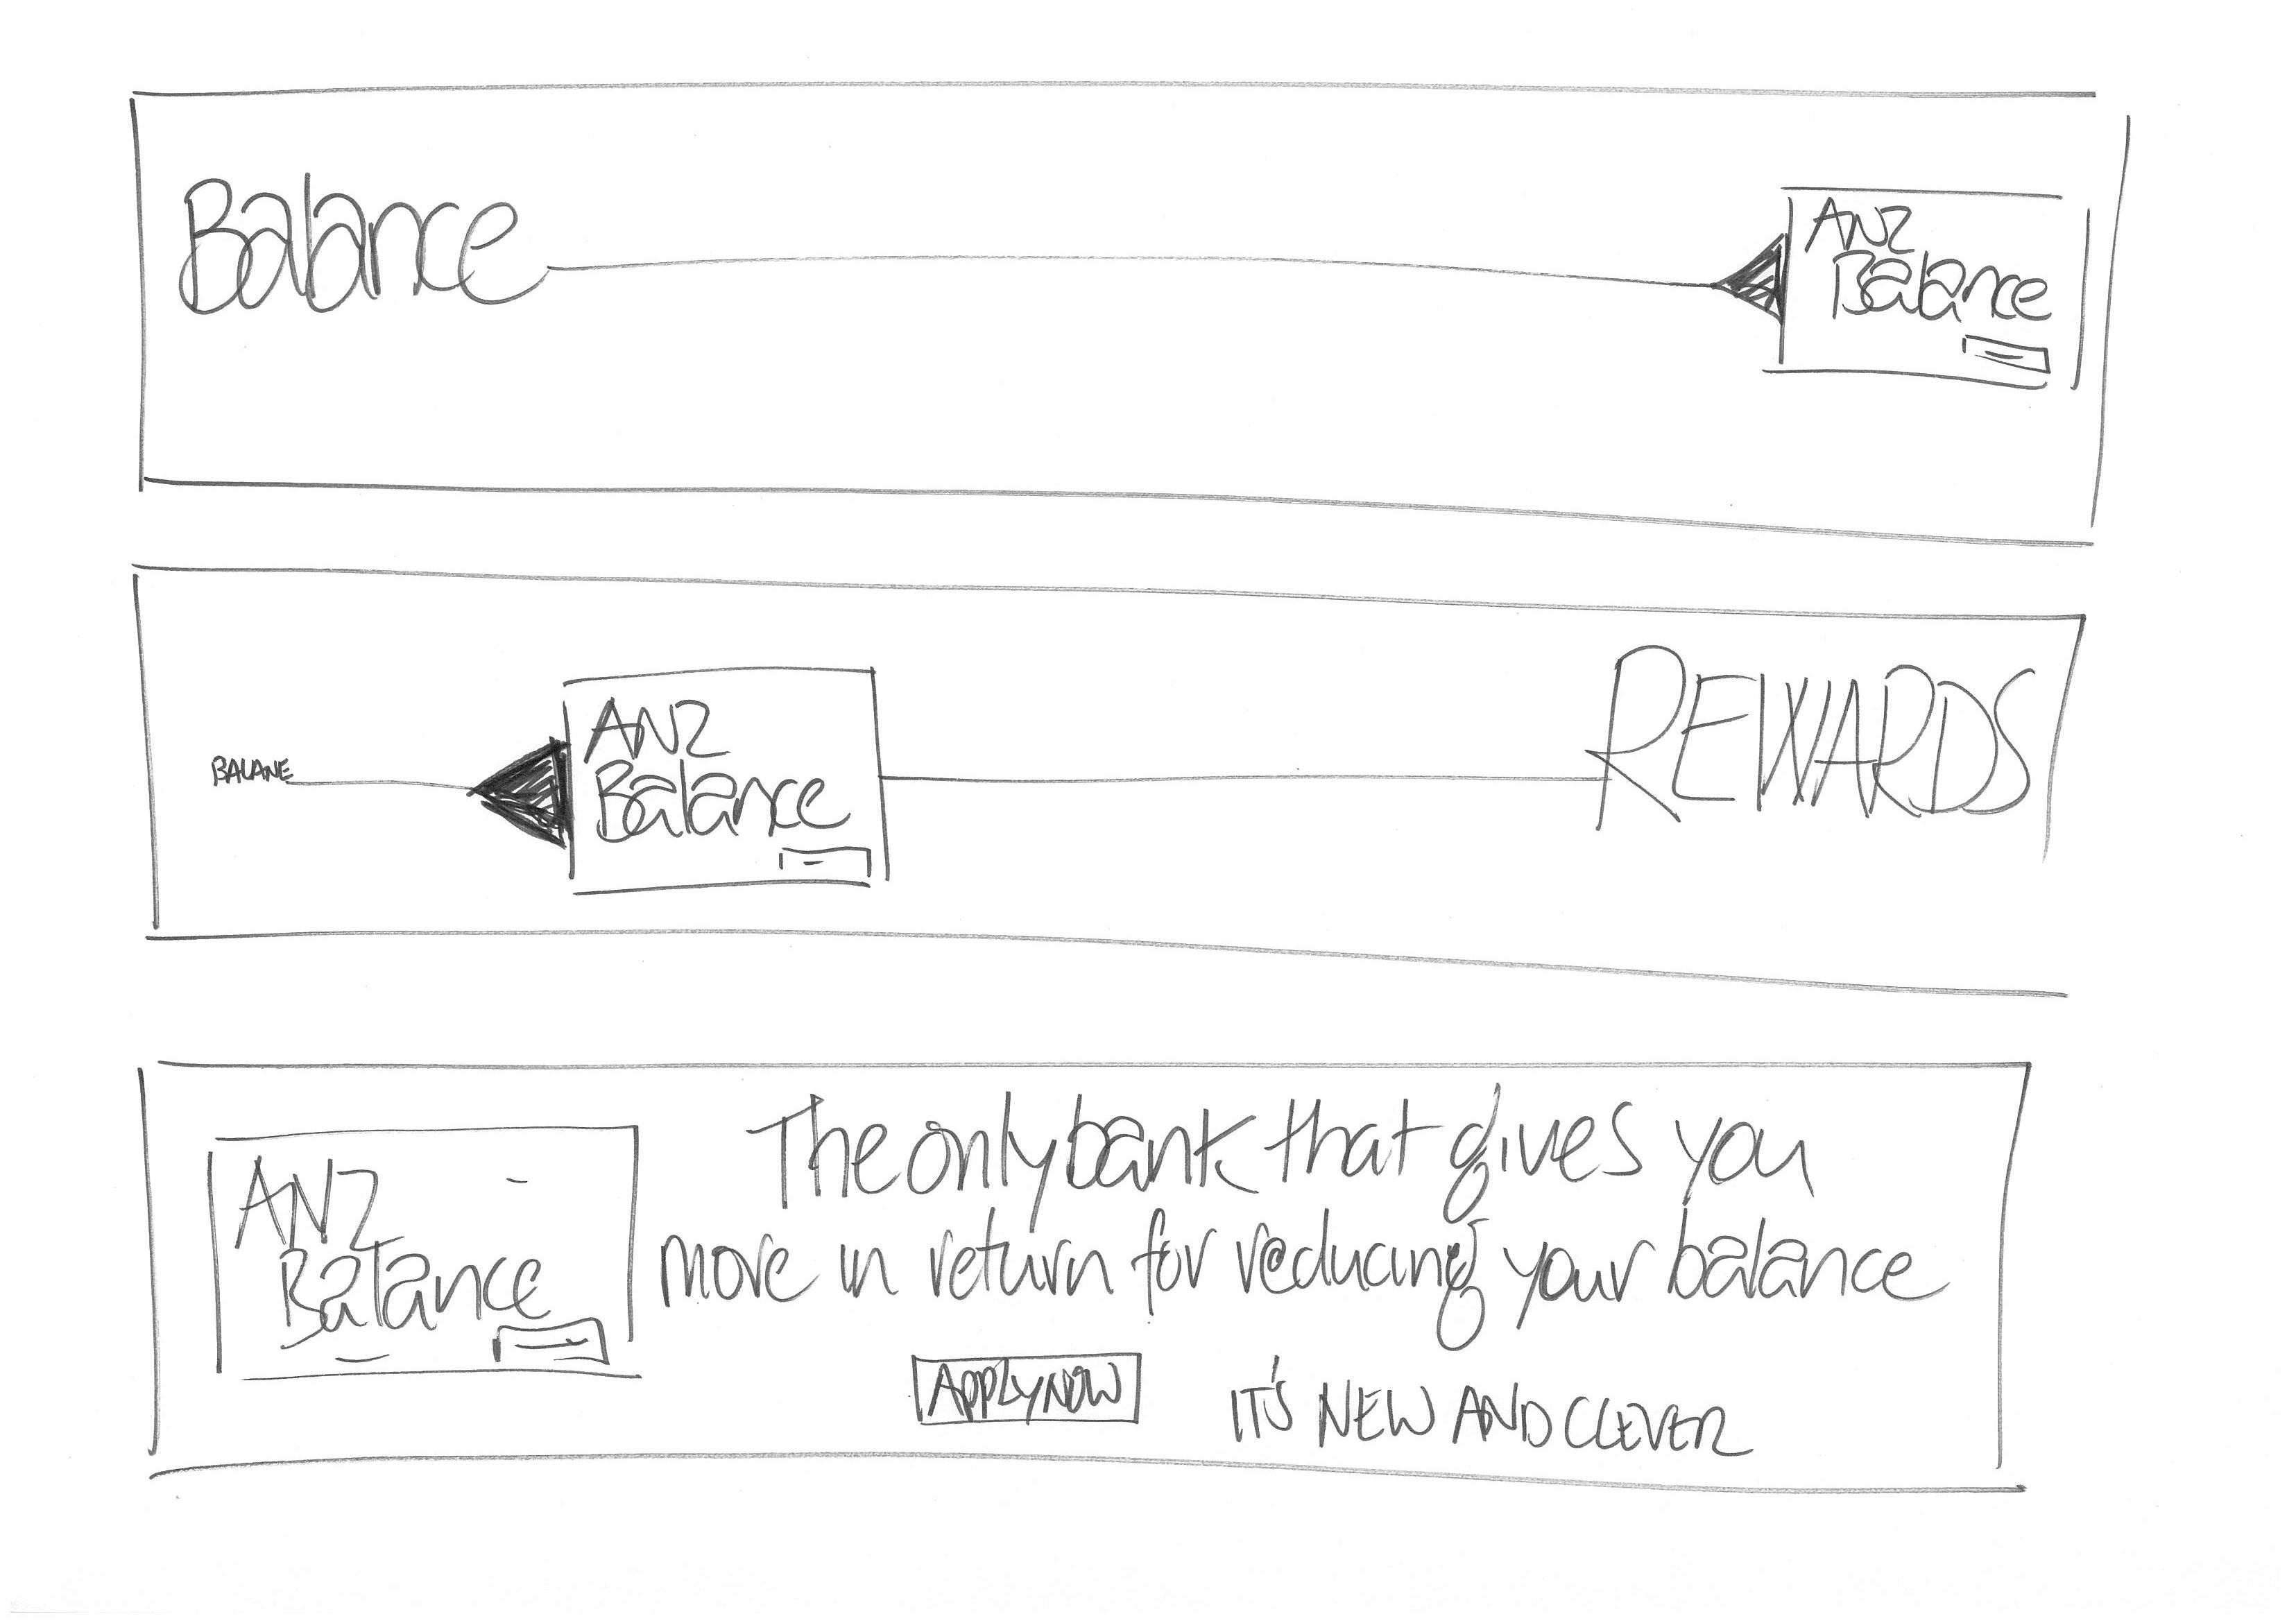 Balance
ANZ
Balance
BALANE
ANZ
Balance
REWARDS
ANZ
Balance
The only bank that gives you
more in return for reducing your balance
APPLY NOW
IT'S NEW AND CLEVER